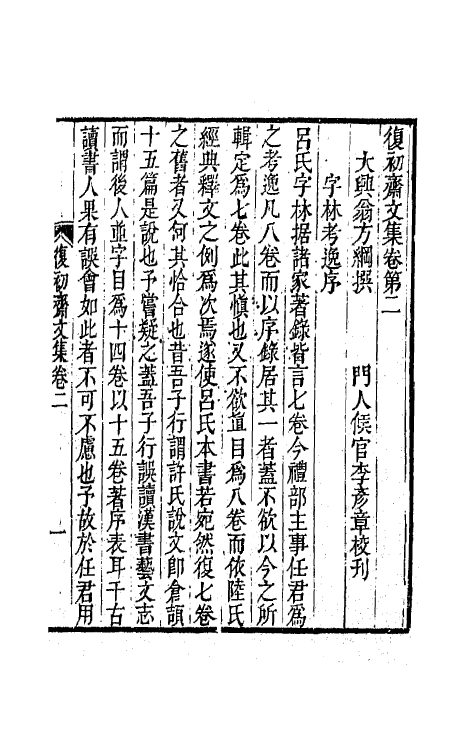 復初齋文集卷第二
大興翁方綱撰　門人侯官李彥章校刊
字林考逸序
呂氏字林据諸家著錄皆言七卷今禮部主事任君爲
之考逸凡八卷而以序錄居其一者蓋不欲以今之所
輯定爲七卷此其愼也又不欲直目爲八卷而依陸氏
經典釋文之例爲次焉遂使呂氏本書若宛然復七卷
之舊者又何其恰合也昔吾子行謂許氏說文卽倉頡
十五篇是說也予嘗疑之蓋吾子行誤讀漢書藝文志
而謂後人並字目爲十四卷以十五卷著序表耳千古
讀書人果有誤會如此者不可不慮也予故於任君用
復初齋文集卷二
一